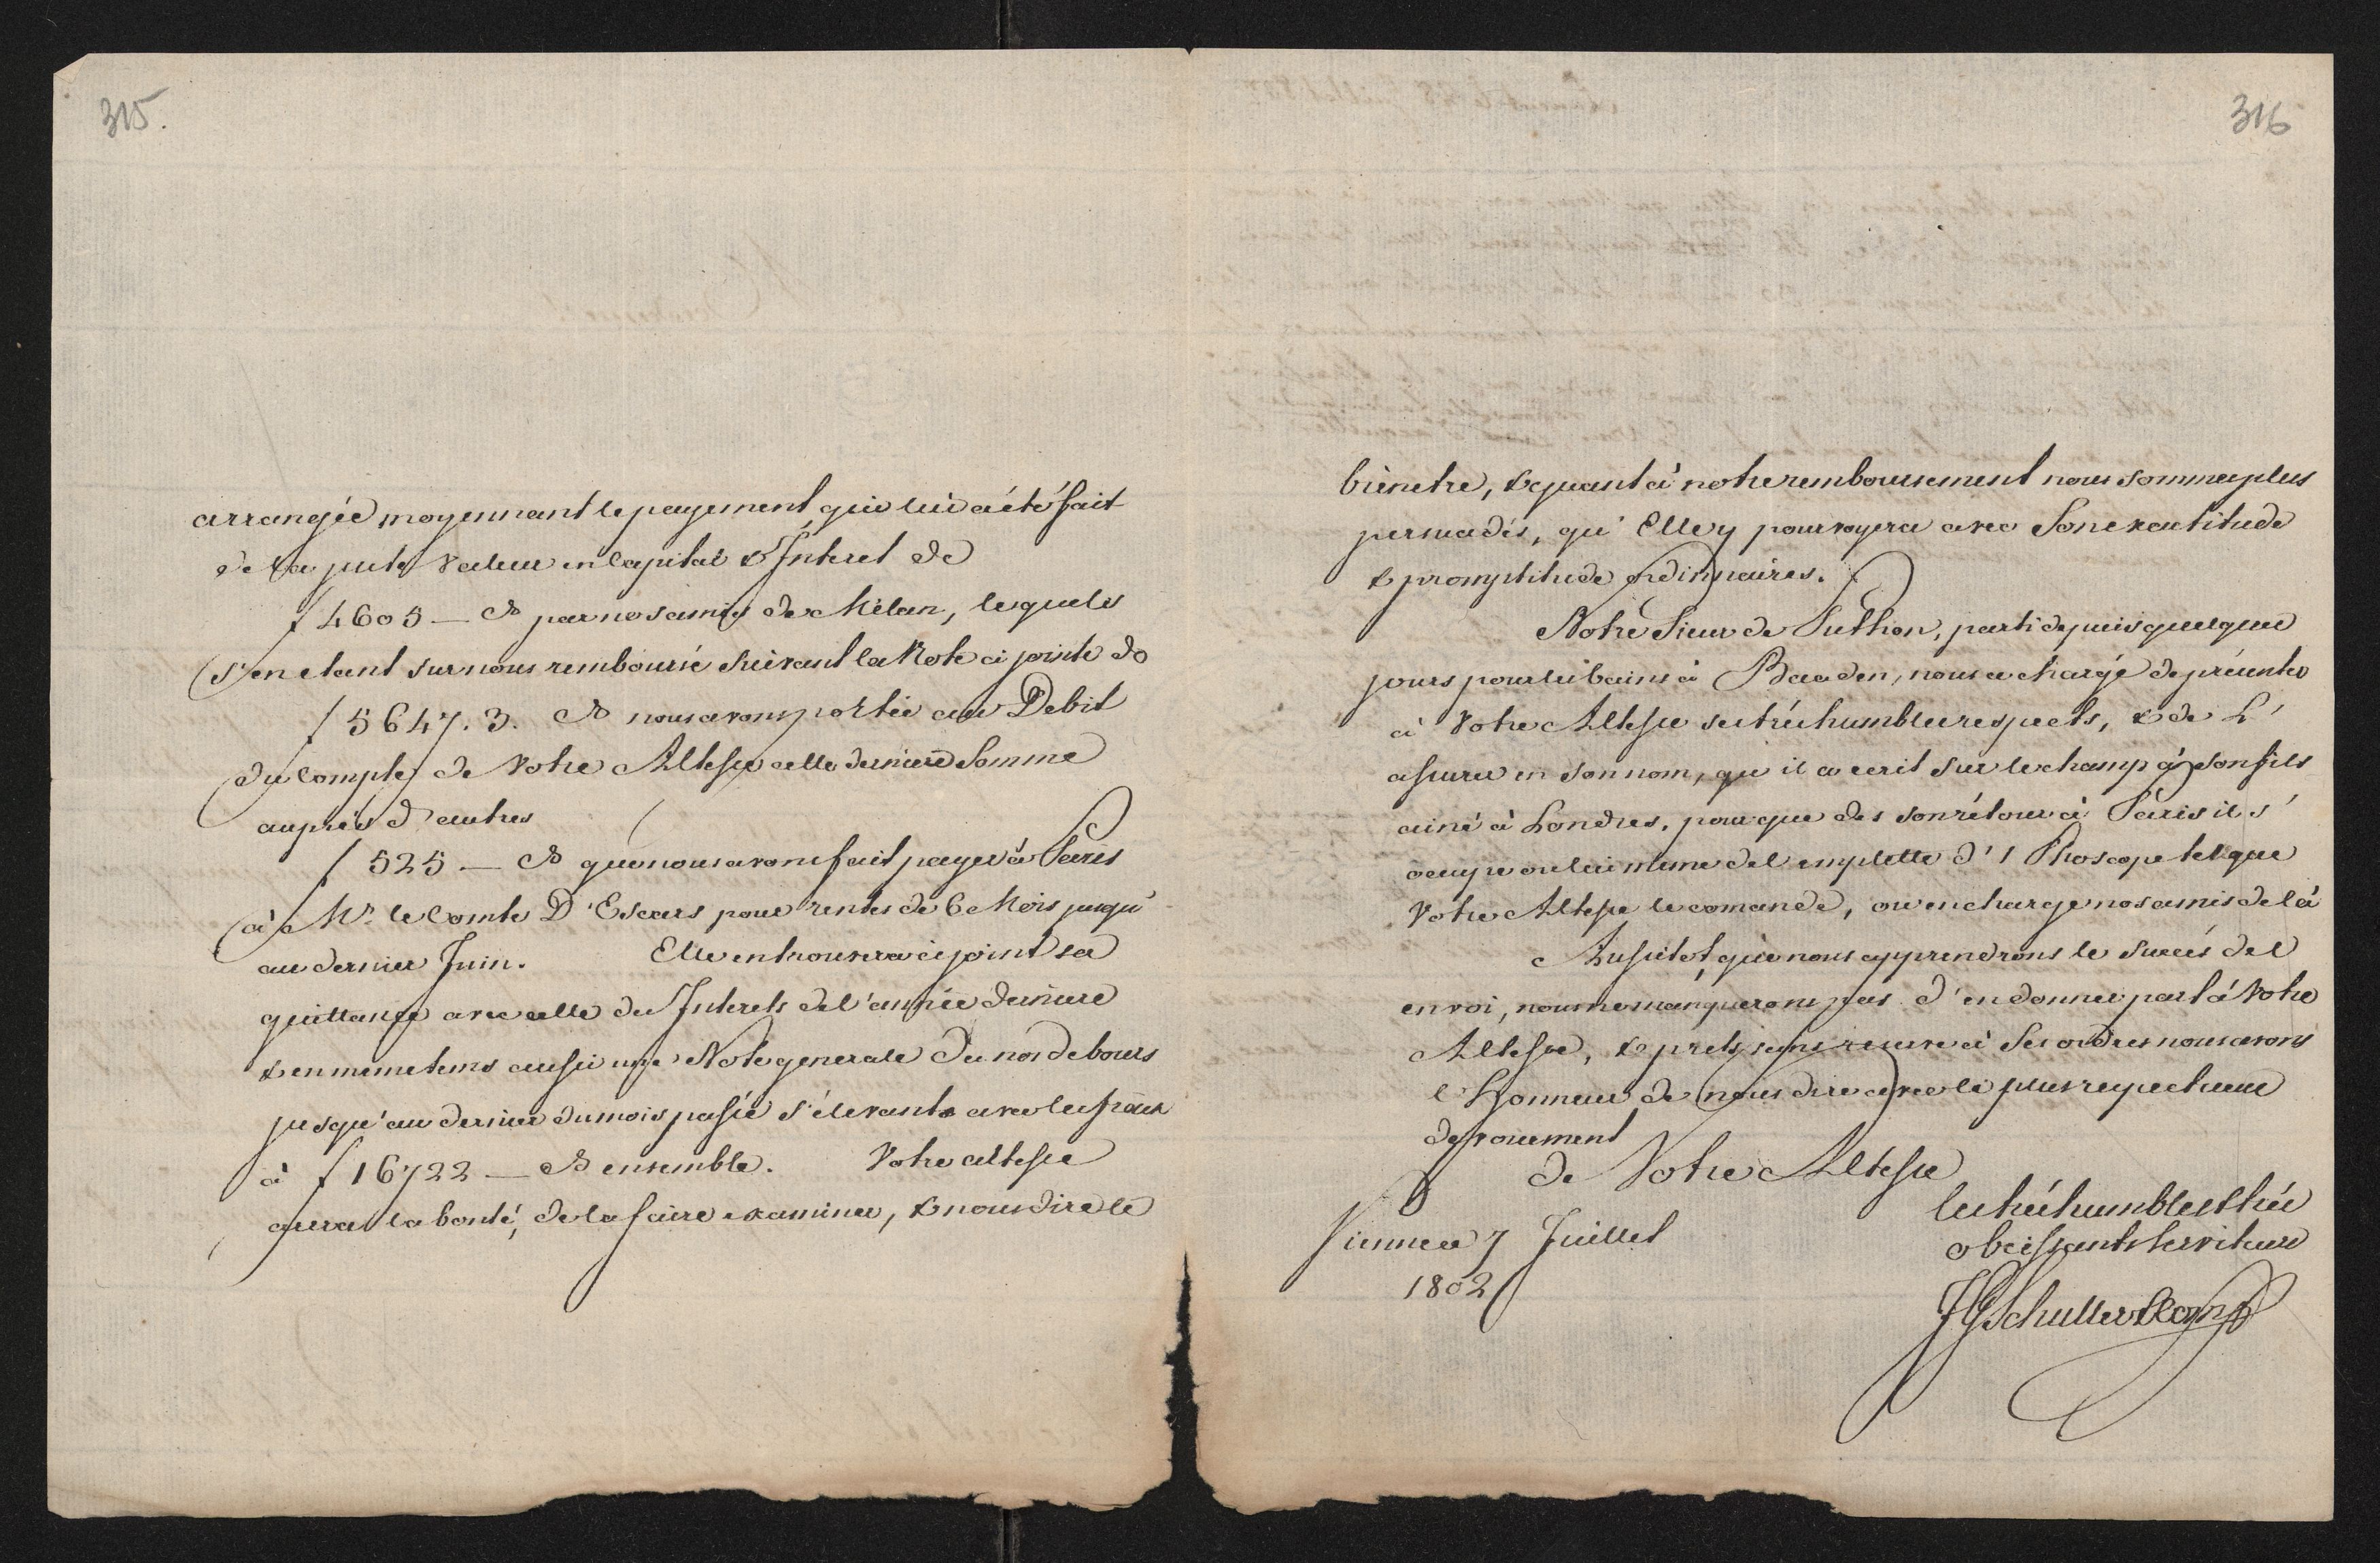 315.
arrangée moyennant le payement, qui lui a été fait
de la juste Valeur en Capital & Interet de
f 4605 — Cs par nos amis de Milan, lequels
s'en etant sur nous remboursé suivant la Note ci jointe do
f 5647.3. Cs nous avons portée au Debit
du Compte de Votre Altesse cette derniere Somme
auprès d'autres
f 525 — Cs que nous avons fait payer à Paris
à Mr. le Comte D'Escars pour rentes de 6 Mois jusqu'
au dernier Juin. Elle en trouvera ci joint sa
quittance avec celle des Interets de l'année derniere
& en meme tems aussi une Note generale du nos debours
jusqu'au dernier du mois passée s'élevants avec les fraix
à f 16722 — Cs ensemble. Votre altesse
aura la bonté, de la faire examiner, & nous dire le
316
bienetre, & quant à notre remboursement nous sommes plus
persuadés, qu'Elle y pourvoyera avec Son exactitude
& promptitude ordinnaires.
Notre Sieur de Puthon, parti depuis quelques
jours pour les bains à Baaden, nous a chargé de présenter
à Votre Altesse ses très humbles respects, & de L'
assurer en son nom, qu'il a ecrit sur le champ à son fils
ainé à Londres, pour que des son rétour à Paris il s'
occupe ou lui meme de l emplette d'1 Phoscope tel que
Votre Altesse le comande, ou en charge nos amis de là
Aussitot, que nous apprendrons le Succés de l
envoi, nous ne manquerons pas d'en donner part à Votre
Altesse, & prets sans reserve à Ses ordres nous avons
l'Honneur de nous dire avec le plus respectueux
devouement
de Votre Altesse
les très humbles & très
obeissants serviteurs
Vienne ce 7 Juillet
1802
JG Schuller & Comp